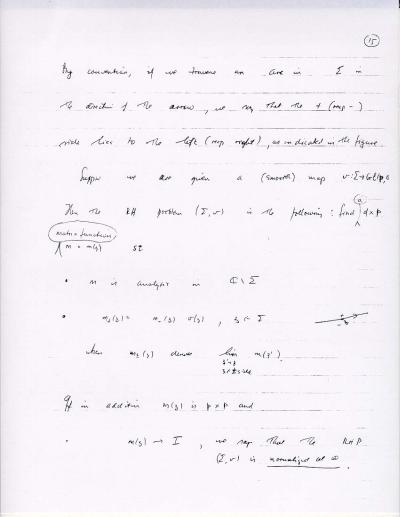 15
By convention, if we traverse an arc in Σ in
the direction of the arrow, we say that the + (resp -)
side lies to the left (resp right), as indicated in the figure.
Suppose we are given a (smooth) map v: Σ → GL(p,
Then the RH problem (Σ, v) is the following: find a l×p
matrix function
m = m(z) st
• m is analytic in ℂ \ Σ
• m₊(z) = m₋(z) v(z), z ∈ Σ
+
-
where m±(z) denotes lim m(z').
z'→z
z'∈± side
If in addition m(z) is p×p and
• m(z) → I, we say that the RHP
(Σ, v) is normalized at ∞.